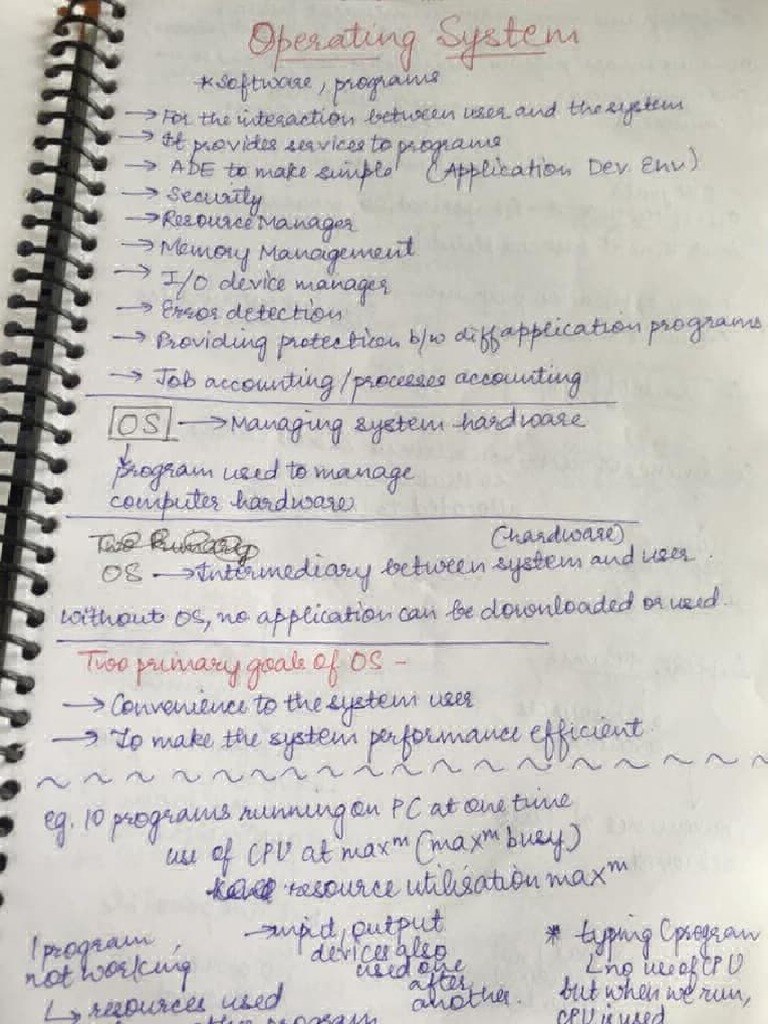 Operating System
* Software, programs
→ For the interaction between user and the system
→ It provides services to programs
→ ADE to make simple (Application Dev. Env)
→ Security
→ Resource Manager
→ Memory Management
→ I/O device manager
→ Error detection
→ Providing protection b/w diff application programs
→ Job accounting/processes accounting
OS → Managing system hardware
↓
program used to manage
computer hardware
(hardware)
OS → Intermediary between system and user.
without OS, no application can be downloaded or used.
Two primary goals of OS -
→ Convenience to the system user
→ To make the system performance efficient
~ ~ ~ ~ ~ ~ ~ ~ ~ ~ ~ ~ ~ ~ ~ ~ ~ ~ ~ ~
eg. 10 programs running on PC at one time
use of CPU at maxᵐ (maxᵐ busy)
resource utilisation maxᵐ
1 program
not working,
↳ resources used
→ output
devices also
used one
after
another.
* typing C program
↳ no use of CPU
but when we run,
CPU is used